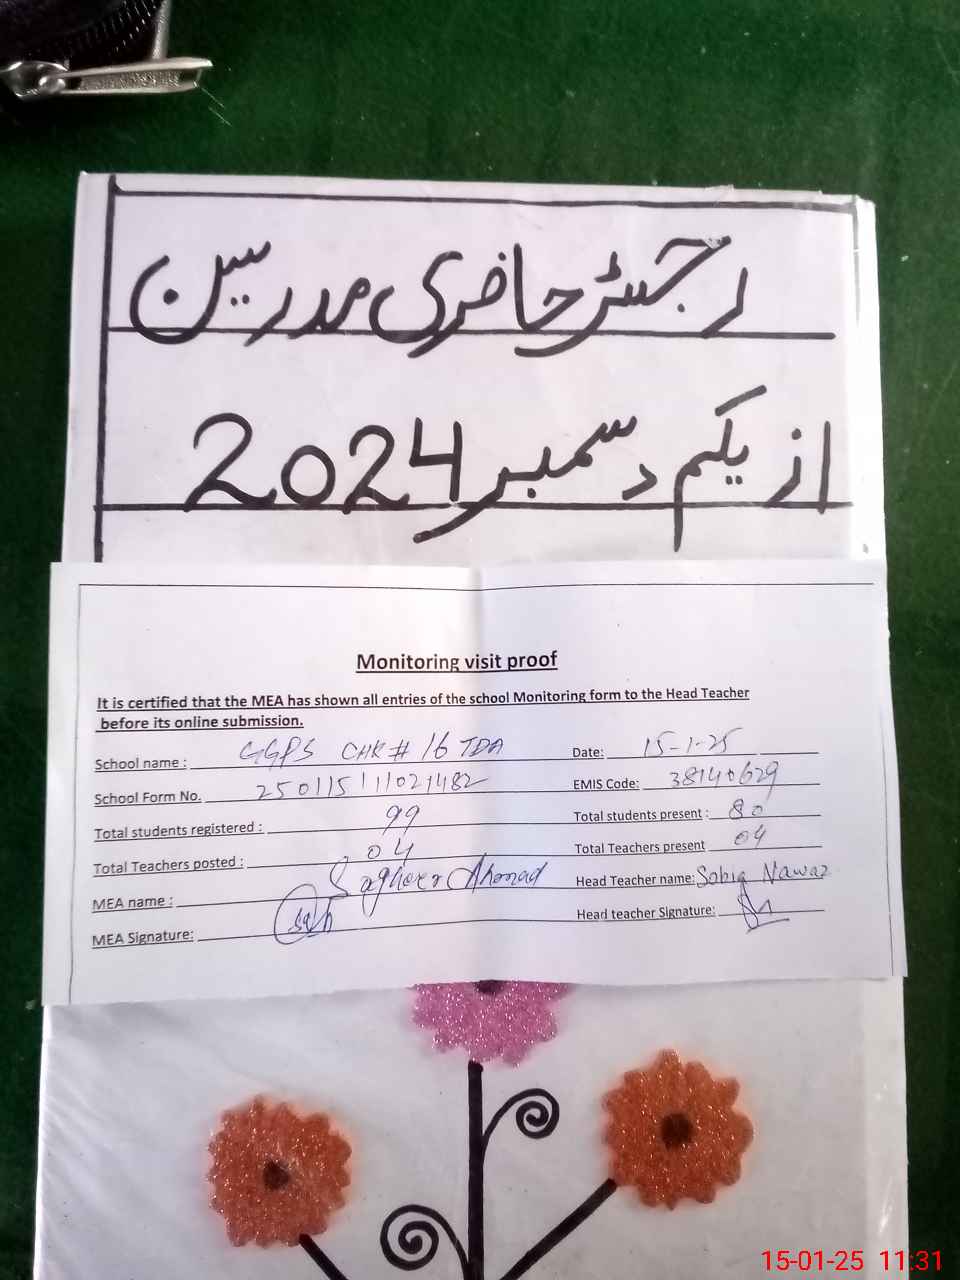 رجسٹر حاضری مدرسین
از یکم دسمبر 2024
Monitoring visit proof
It is certified that the MEA has shown all entries of the school Monitoring form to the Head Teacher
before its online submission.
School name : GGPS CHK # 16 TDA Date: 15-1-25
School Form No. 250115111021482 EMIS Code: 38140629
Total students registered : 99 Total students present : 80
Total Teachers posted : 04 Total Teachers present 04
MEA name : Sagheer Ahmad Head Teacher name: Sobia Nawaz
MEA Signature: Head teacher Signature:
15-01-25 11:31